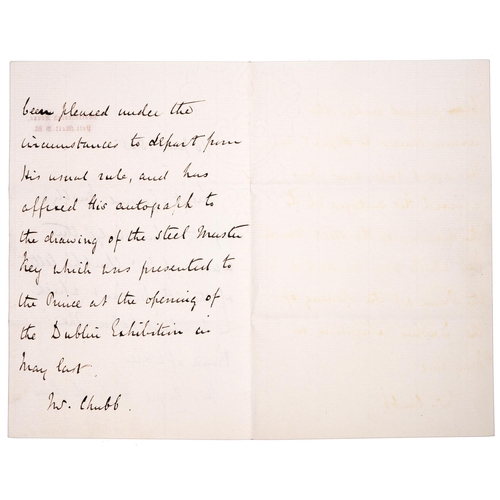 been pleased under the
circumstances to depart from
His usual rule, and has
affixed His autograph to
the drawing of the Steel Master
Key which was presented to
the Prince at the opening of
the Dublin Exhibition in
May last.
Mr. Chubb.